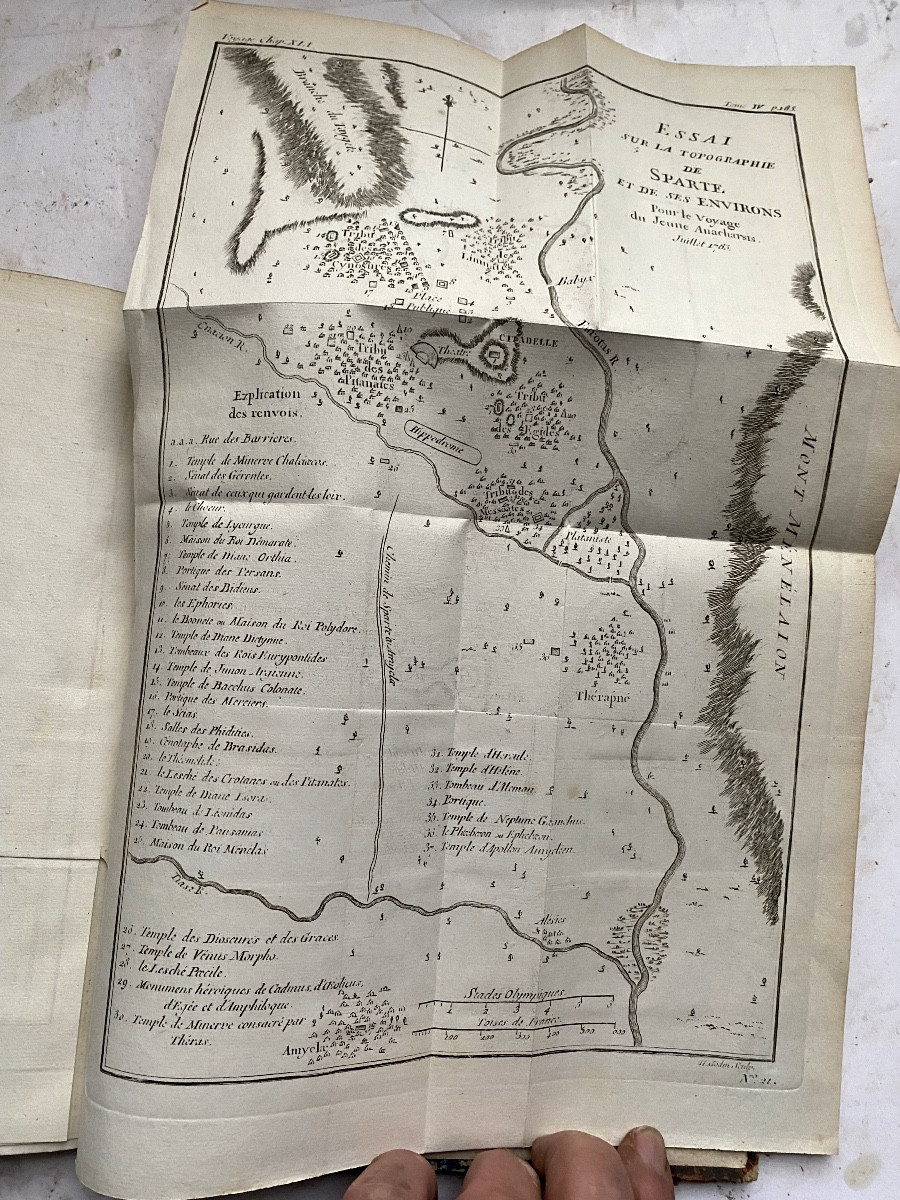 Voyage Chap. XLI
Tome IV p.
ESSAI
SUR LA TOPOGRAPHIE
DE
SPARTE.
ET DE SES ENVIRONS
Pour le Voyage
du Jeune Anacharsis.
Juillet 1783.
Branche du Taygete
Tribu
des
Cynosures
Tribu
des
Limnates
Place
Publique
Babyx
Eurotas R.
Cnacion R.
Tribu
des
Pitanates
Theatre
CITADELLE
Tribu
des Egides
Hippodrome
Tribu des
Messoates
Plataniste
MONT MÉNÉLAION
Chemin de Sparte à Amyclæ
Thérapné
Explication
des renvois.
a.a.a. Rue des Barrieres.
1. Temple de Minerve Chalciœcos.
2. Sénat des Gérontes.
3. Sénat de ceux qui gardent les loix.
4. le Chœur.
5. Temple de Lycurgue.
6. Maison du Roi Démarate.
7. Temple de Diane Orthia.
8. Portique des Persans.
9. Sénat des Bidiens.
10. les Ephories.
11. le Boonete ou Maison du Roi Polydore.
12. Temple de Diane Dictynne.
13. Tombeaux des Rois Eurypontides
14. Temple de Junon Argienne.
15. Temple de Bacchus Colonate.
16. Portique des Merciers.
17. le Scias.
18. Salles des Phidities.
19. Cénotaphe de Brasidas.
20. le Théomélide.
21. le Lesché des Crotanes ou des Pitanates.
22. Temple de Diane Isora.
23. Tombeau de Léonidas
24. Tombeau de Pausanias
25. Maison du Roi Ménélas
31. Temple d'Hercule.
32. Temple d'Hélene.
33. Tombeau d'Alcman.
34. Portique.
35. Temple de Neptune Génethlius.
36. le Phœbeon ou Ephebeon.
37. Temple d'Apollon Amycléen.
Tiase F.
Alesies
26. Temple des Dioscures et des Graces.
27. Temple de Vénus Morpho.
28. le Lesché Pœcile.
29. Monumens héroïques de Cadmus, d'Œolicus,
d'Egée et d'Amphiloque.
30. Temple de Minerve consacré par
Théras.
Amyclæ
Stades Olympiques.
1 2 3 4 5
Toises de France.
100 200 300 400 500
Sculp.
N.° 21.